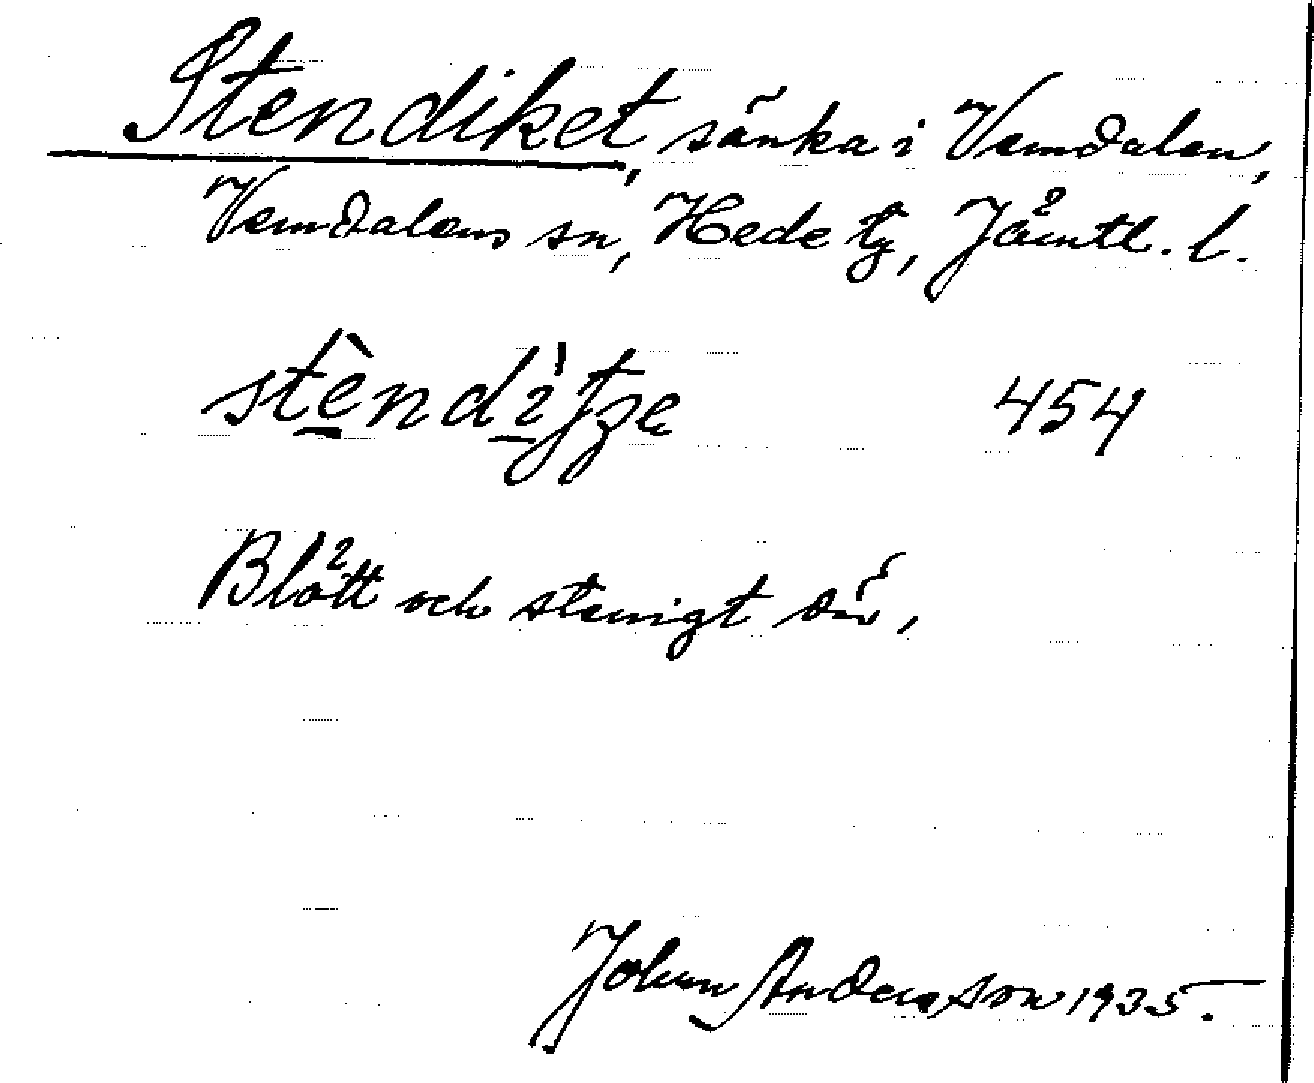 Stendiket, sänka i Vemdalen,
Vemdalens sn, Hede tg, Jämtl. l.
stèndı̀tʃe 454
Blött och stenigt där,
Johan Andersson 1935.